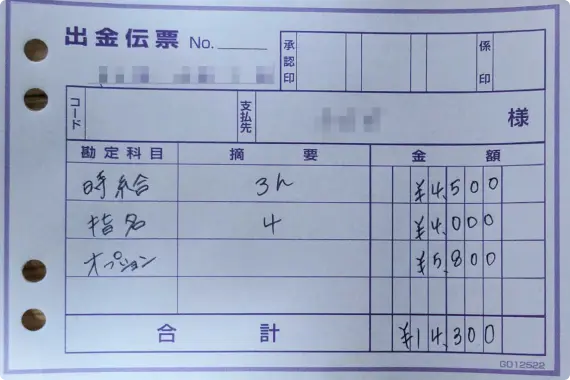 出金伝票 No.
承認印 係印
コード 支払先 様
勘定科目 摘要 金額
時給 3h ¥4,500
指名 4 ¥4,000
オプション ¥5,800
合計 ¥14,300
G012522